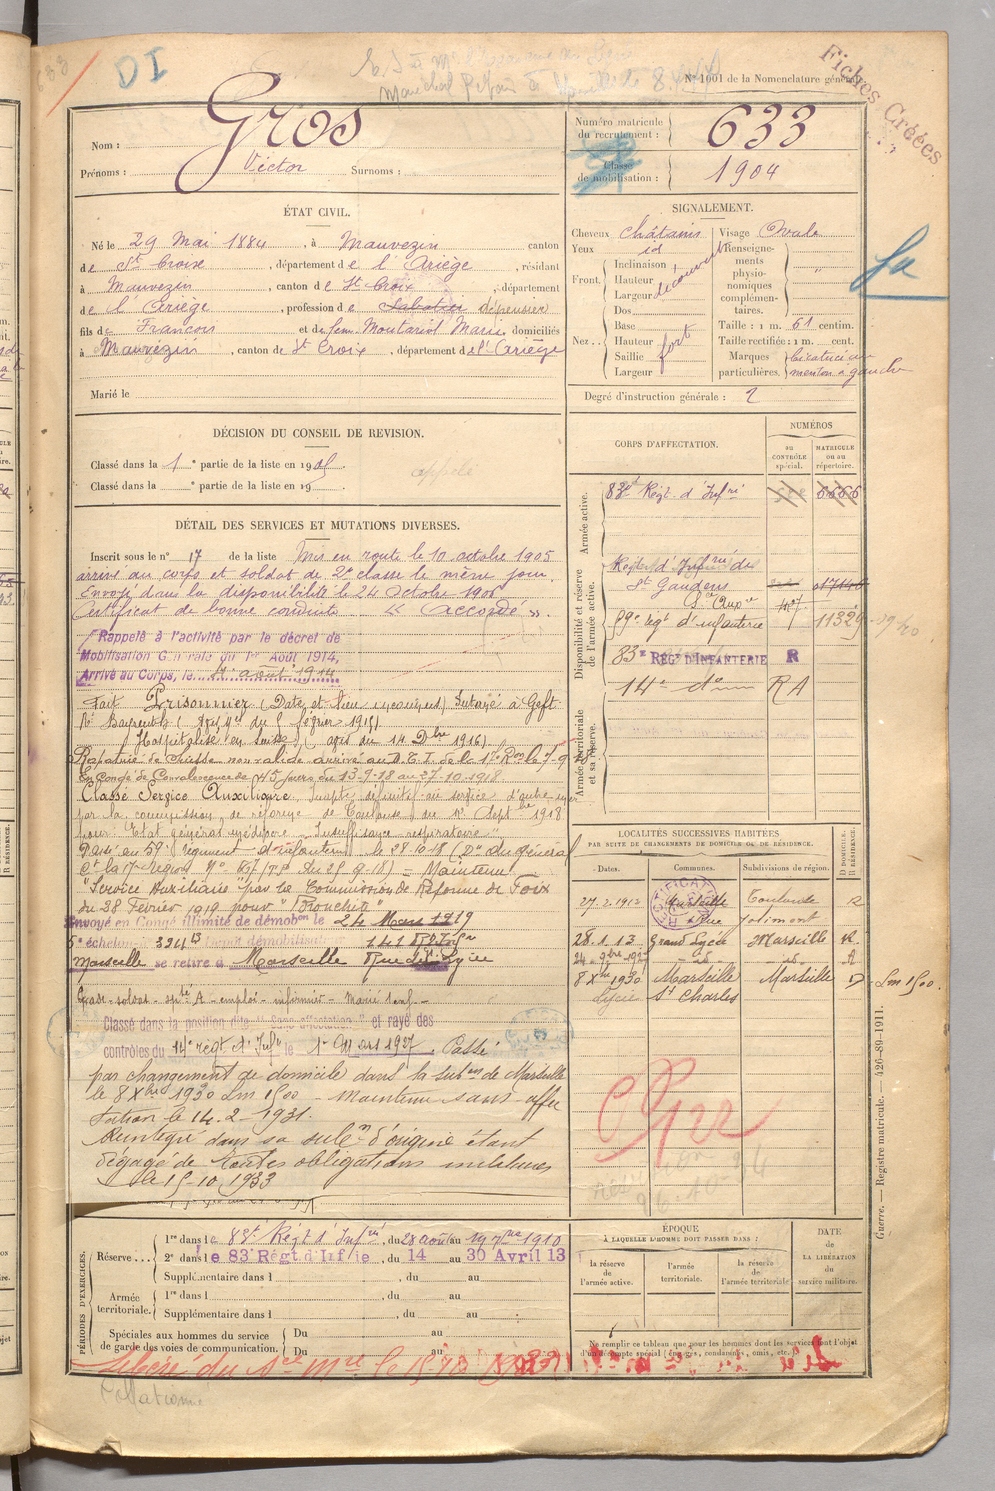 DI
N° 1001 de la Nomenclature générale
Fiches Créées
Nom : Gros
Prénoms : Victor Surnoms :
Numéro matricule du recrutement : 633
Classe de mobilisation : 1904
ÉTAT CIVIL.
Né le 29 Mai 1884, à Mauvezin canton
de Ste Croix, département de l'Ariège, résidant
à Mauvezin, canton de Ste Croix, département
de l'Ariège, profession de Sabotier dépensier
fils de François et de feu Moutariol Marie domiciliés
à Mauvezin, canton de St Croix, département de l'Ariège
Marié le
SIGNALEMENT.
Cheveux châtains Visage Ovale
Yeux id
Front. Inclinaison Hauteur Largeur découvert
Nez.. Dos Base Hauteur Saillie Largeur fort
Renseignements physionomiques complémentaires. "
Taille : 1 m. 61 centim.
Taille rectifiée : 1 m. cent.
Marques particulières. Cicatrice au menton à gauche
Degré d'instruction générale : 2
DÉCISION DU CONSEIL DE REVISION.
Classé dans la 1e partie de la liste en 1905.
Classé dans la e partie de la liste en 19
appelé
CORPS D'AFFECTATION.
NUMÉROS
au CONTRÔLE spécial.
MATRICULE ou au répertoire.
Armée active.
83e Régt d'Infie 6666
Disponibilité et réserve de l'armée active.
Régt d'Infrie de
St Gaudens 017146
59e régt d'infanterie 11329
83e RÉGT D'INFANTERIE R
14e dº R A
Armée territoriale et sa réserve.
DÉTAIL DES SERVICES ET MUTATIONS DIVERSES.
Inscrit sous le n° 17 de la liste Mis en route le 10 octobre 1905
arrivé au corps et soldat de 2e classe le même jour.
Envoyé dans la disponibilité le 24 Octobre 1906
Certificat de bonne conduite « accordé ».
Rappelé à l'activité par le décret de
Mobilisation Générale du 1er Août 1914,
Arrivé au Corps, le 4 août 1914
Fait Prisonnier (Date et lieu inconnus) Interné à Geft
Bayreuth (avis du 5 février 1915)
Hospitalisé en Suisse (avis du 14 Dbre 1916)
Rapatrié de Suisse non valide arrivé au
En Congé de Convalescence de 45 jours du 13-9-18 au 27-10-1918
Classé Service Auxiliaire, Inapte définitif au service d'outre mer
par la commission de réforme de Toulouse du Septbre 1918
pour "Etat général médiocre Insuffisance respiratoire"
Passé au 59e régiment d'infanterie le 28.10.18 (Don du général
Ct la 17e région = Maintenu
"Service Auxiliaire" par la Commission de Réforme de Foix
du 28 Février 1919 pour "Bronchite"
Envoyé en Congé illimité de démobon le 24 Mars 1919
échelon Dépôt démobilisat 141e Rgt Infie
Marseille se retire à Marseille Rue du Lycée
Grade - soldat - emploi - infirmier -
Classé dans la position dite "Sans affectation" et rayé des
contrôles du 14e régt d'Infie le 1er Mars 1927. Passé
par changement de domicile dans la subon de Marseille
le 8 Xbre 1930 Lm 1500 - Maintenu sans affec
tation le 14.2.1931.
Réintégré dans sa subon d'origine étant
dégagé de toutes obligations militaires
le 15-10-1933
LOCALITÉS SUCCESSIVES HABITÉES
PAR SUITE DE CHANGEMENTS DE DOMICILE OU DE RÉSIDENCE.
Dates. Communes. Subdivisions de région. D DOMICILE. R RÉSIDENCE.
RECTIFICATION
27.2.1912 Marseille Toulouse R
Rue Jolimont
28.1.13 Grand Lycée Marseille R
24 9bre 192 - id - - id -
8 Xbre 1930 Marseille Marseille D Lm 1500.
Lycée St Charles
Guerre. — Registre matricule. — 426-89-1911.
PÉRIODES D'EXERCICES.
Réserve... 1re dans le 83e Régt d'Infie, du 28 août au 19 7bre 1910
2e dans le 83e Régt.d'Inf­ie, du 14 au 30 Avril 13
Supplémentaire dans l , du au
Armée territoriale. 1re dans l , du au
Supplémentaire dans l , du au
Spéciales aux hommes du service de garde des voies de communication. Du au
Du au
ÉPOQUE
À LAQUELLE L'HOMME DOIT PASSER DANS :
la réserve de l'armée active.
l'armée territoriale.
la réserve de l'armée territoriale
DATE de LA LIBÉRATION du service militaire.
Ne remplir ce tableau que pour les hommes dont les services font l'objet d'un décompte spécial (engagés, condamnés, omis, etc.).
Libéré du sce mre le 15